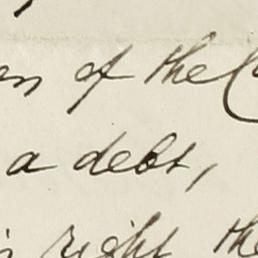 of the
a debt,
right the